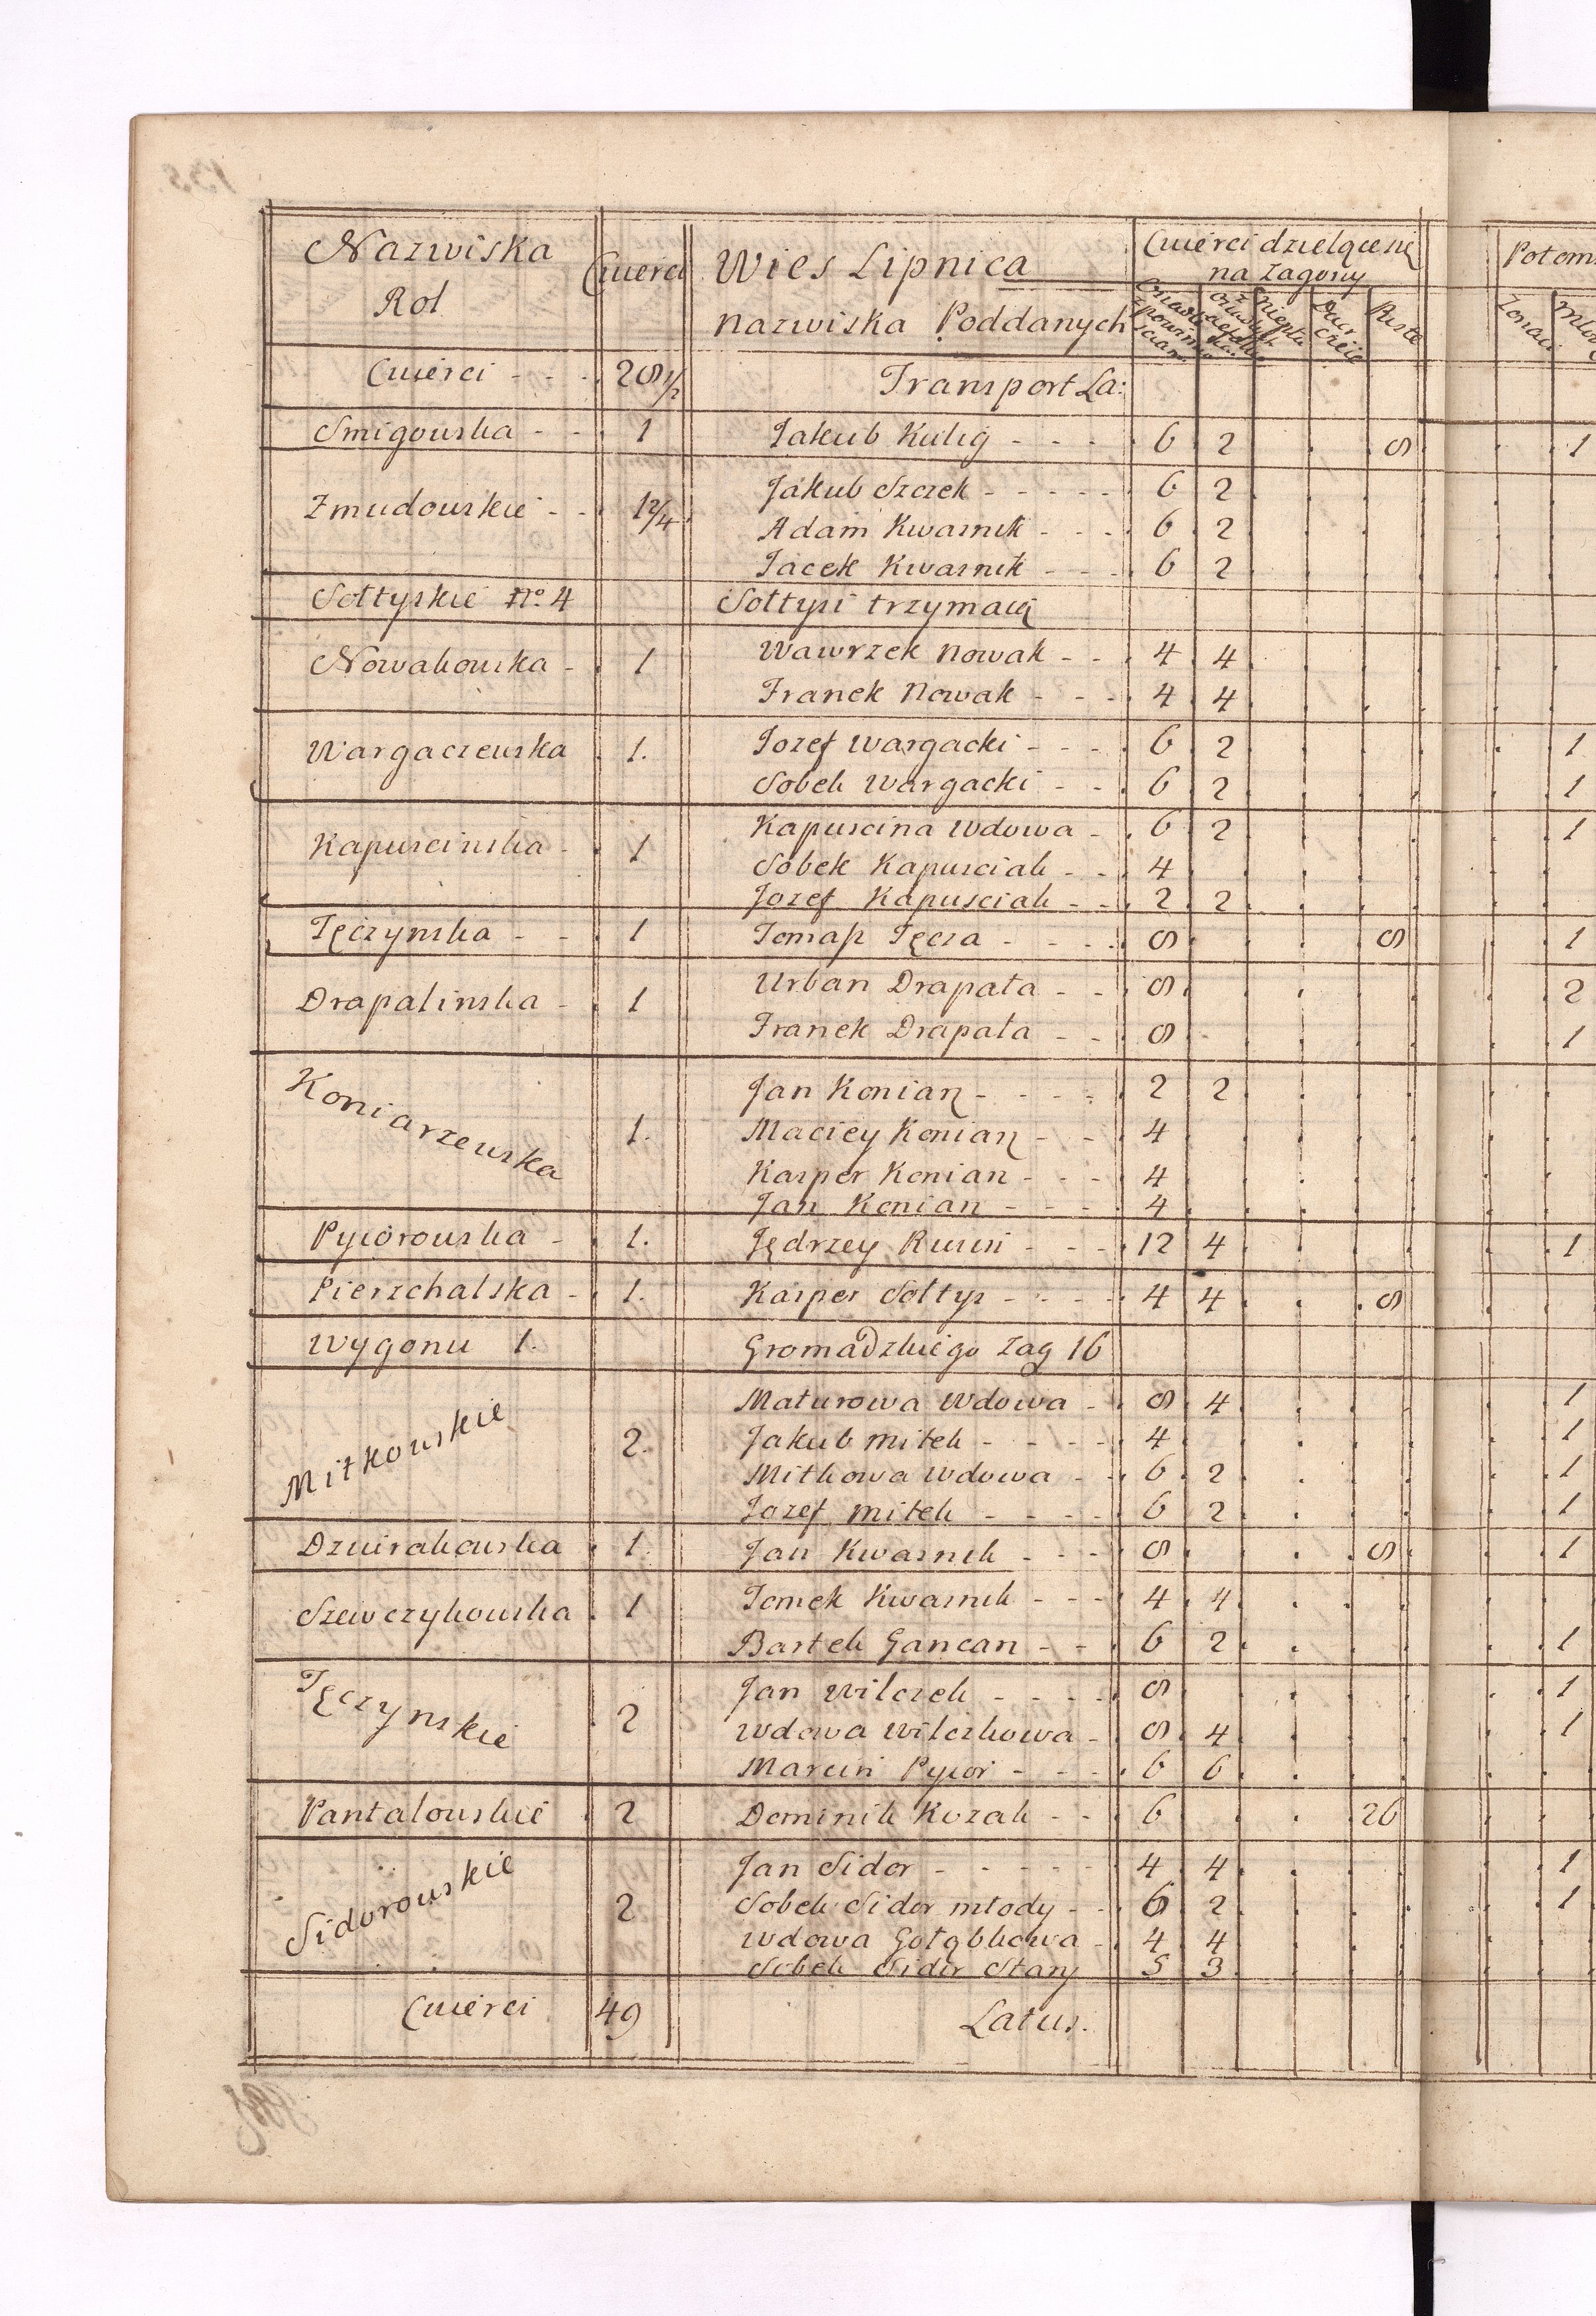 Nazwiska Rol Cwierci Wies Lipnica Cwierci dzielące się na Zagony Potom
nazwiska Poddanych Puste Zonaci
Cwierci - - - 28 1/2 Transport La:
Smigowska - - 1 Jakub Kulig - - - 6 2 8 1
Zmudowskie - - 1 2/4 Jakub Szczek - - - - - 6 2
Adam Kwasnik - - - 6 2
Jacek Kwasnik - - - 6 2
Sołtyskie No. 4 Sołtysi trzymaią
Nowakowska - 1 Wawrzek Nowak - - 4 4
Franek Nowak - - - 4 4
Wargaczewska 1. Jozef Wargacki - - - 6 2 1
Sobek Wargacki - - 6 2 1
Kapuscinska - 1 Kapuscina Wdowa - 6 2 1
Sobek Kapusciak - - 4
Jozef Kapusciak - - 2 2
Tęczynska - - 1 Tomasz Tęcza - - - - 8 8 1
Drapalinska - 1 Urban Drapała - - 8 2
Franek Drapała - - 8 1
Koniarzewska 1. Jan Koniarz - - - - 2 2
Maciey Koniarz - - - 4
Kasper Koniarz - - - 4
Jan Koniarz - - - - 4
Pyciorowska - 1. Jędrzey Rusin - - - 12 4 1
Pierzchalska - 1. Kasper Sołtys - - - - 4 4 8
Wygonu 1. Gromadzkiego Zag 16
Mitkowskie 2. Maturowa Wdowa - 8 4 1
Jakub Mitek - - - - 4 1
Mitkowa Wdowa - 6 2 1
Jozef Mitek - - - - 6 2 1
Dzwirakowska 1. Jan Kwasnik - - - 8 8 1
Szewczykowska 1 Tomek Kwasnik - - - 4 4
Bartek Gancarz - - 6 2 1
Tęczynskie 2 Jan Wilczek - - - - 8 1
Wdowa Wilczkowa - 8 4 1
Marcin Pycior - - - 6 6
Pantalowskie 2 Dominik Kozak - - 6 26
Sidorowskie 2 Jan Sidor - - - - - 4 4 1
Sobek Sidor młody - - 6 2 1
Wdowa Gołąbkowa - 4 4
Sobek Sidor Stary 5 3
Cwierci 49 Latus.